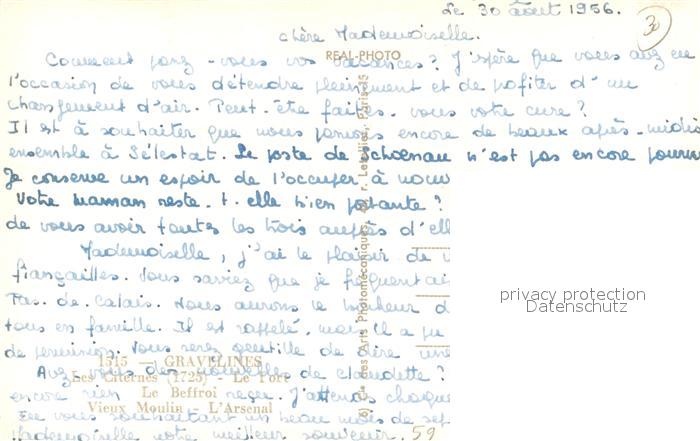 Le 30 août 1956.
30
chère Mademoiselle.
REAL-PHOTO
Comment passez-vous vos vacances? J'espère que vous avez eu
l'occasion de vous détendre pleinement et de profiter d'un
changement d'air. Peut-être faites-vous votre cure?
Il est à souhaiter que nous passions encore de beaux après-midis
ensemble à Sélestat. Le poste de Schoenau n'est pas encore pourvu
Je conserve un espoir de l'occuper à nouv
Votre maman reste-t-elle bien portante?
de vous avoir toutes les trois auprès d'ell
Mademoiselle, j'ai le plaisir de v
fiançailles. Vous saviez que je fréquentai
Pas-de-Calais. Nous aurons le bonheur d
tous en famille. Il est rappelé, mais il a pu
de permission. Vous serez gentille de dire une
1515 — GRAVELINES
Avez-vous des nouvelles de Claudette?
Les Citernes (1725) - Le Fort
encore rien reçu. J'attends chaque
Le Beffroi
Vieux Moulin - L'Arsenal
En vous souhaitant un beau mois de sep
Mademoiselle votre meilleur souvenir.
59
privacy protection
Datenschutz